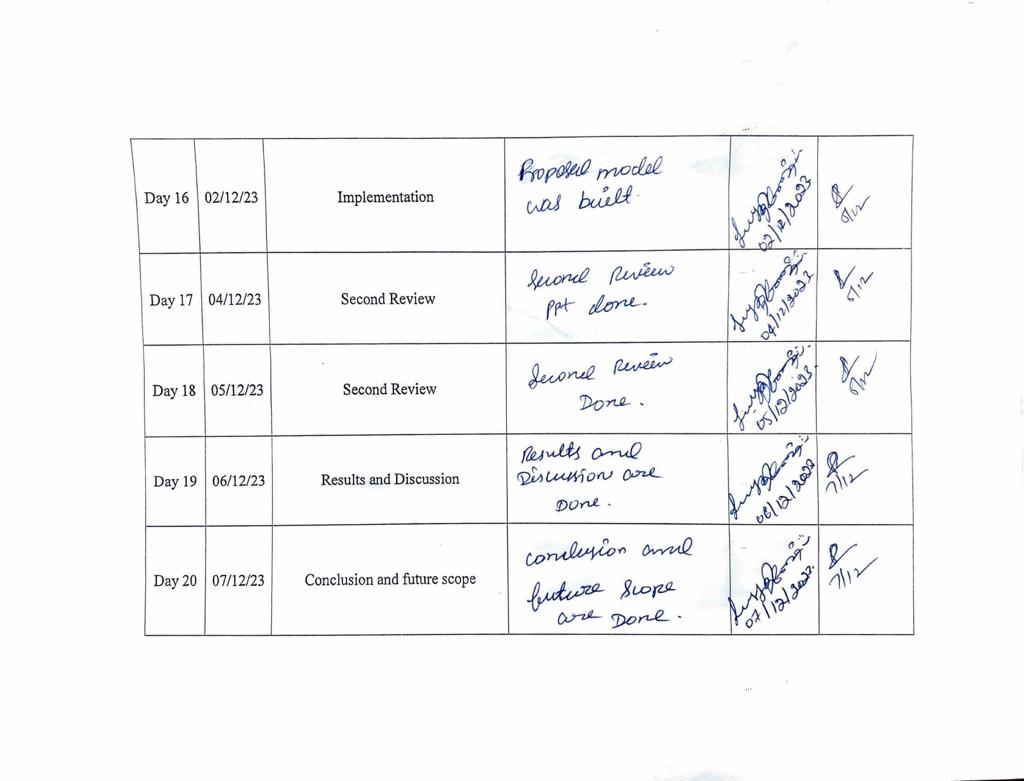 Day 16 02/12/23 Implementation Proposed model
was built.
02/12/2023
Day 17 04/12/23 Second Review Second Review
PPt done.
04/12/2023 5/12
Day 18 05/12/23 Second Review Second Review
Done.
05/12/2023
Day 19 06/12/23 Results and Discussion Results and
Discussion are
Done.
06/12/2023 7/12
Day 20 07/12/23 Conclusion and future scope conclusion and
future Scope
are Done.
07/12/2023 7/12